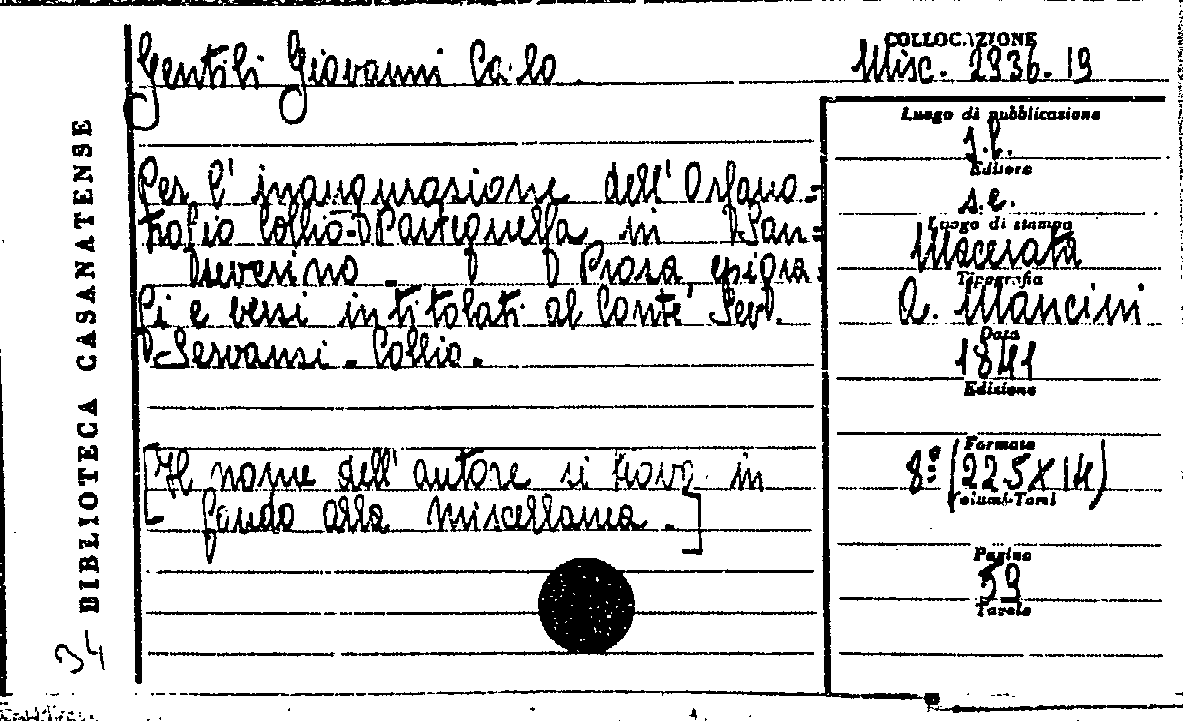 Gentili Giovanni Carlo.
COLLOCAZIONE
Misc. 2936. 19
Per l' inaugurazione dell' Orfano=
trofio Collio-Parteguelfa in San=
severino - Prosa, epigra=
fi e versi intitolati al Conte Sev.
Servanzi - Collio.
[Il nome dell' autore si trova in
fondo alla miscellanea.]
Luogo di pubblicazione
s.l.
Editore
s.e.
Luogo di stampa
Macerata
Tipografia
A. Mancini
Data
1841
Edizione
Formato
8º (22.5 X 14)
Volumi-Tomi
Pagine
59
Tavole
BIBLIOTECA CASANATENSE
34